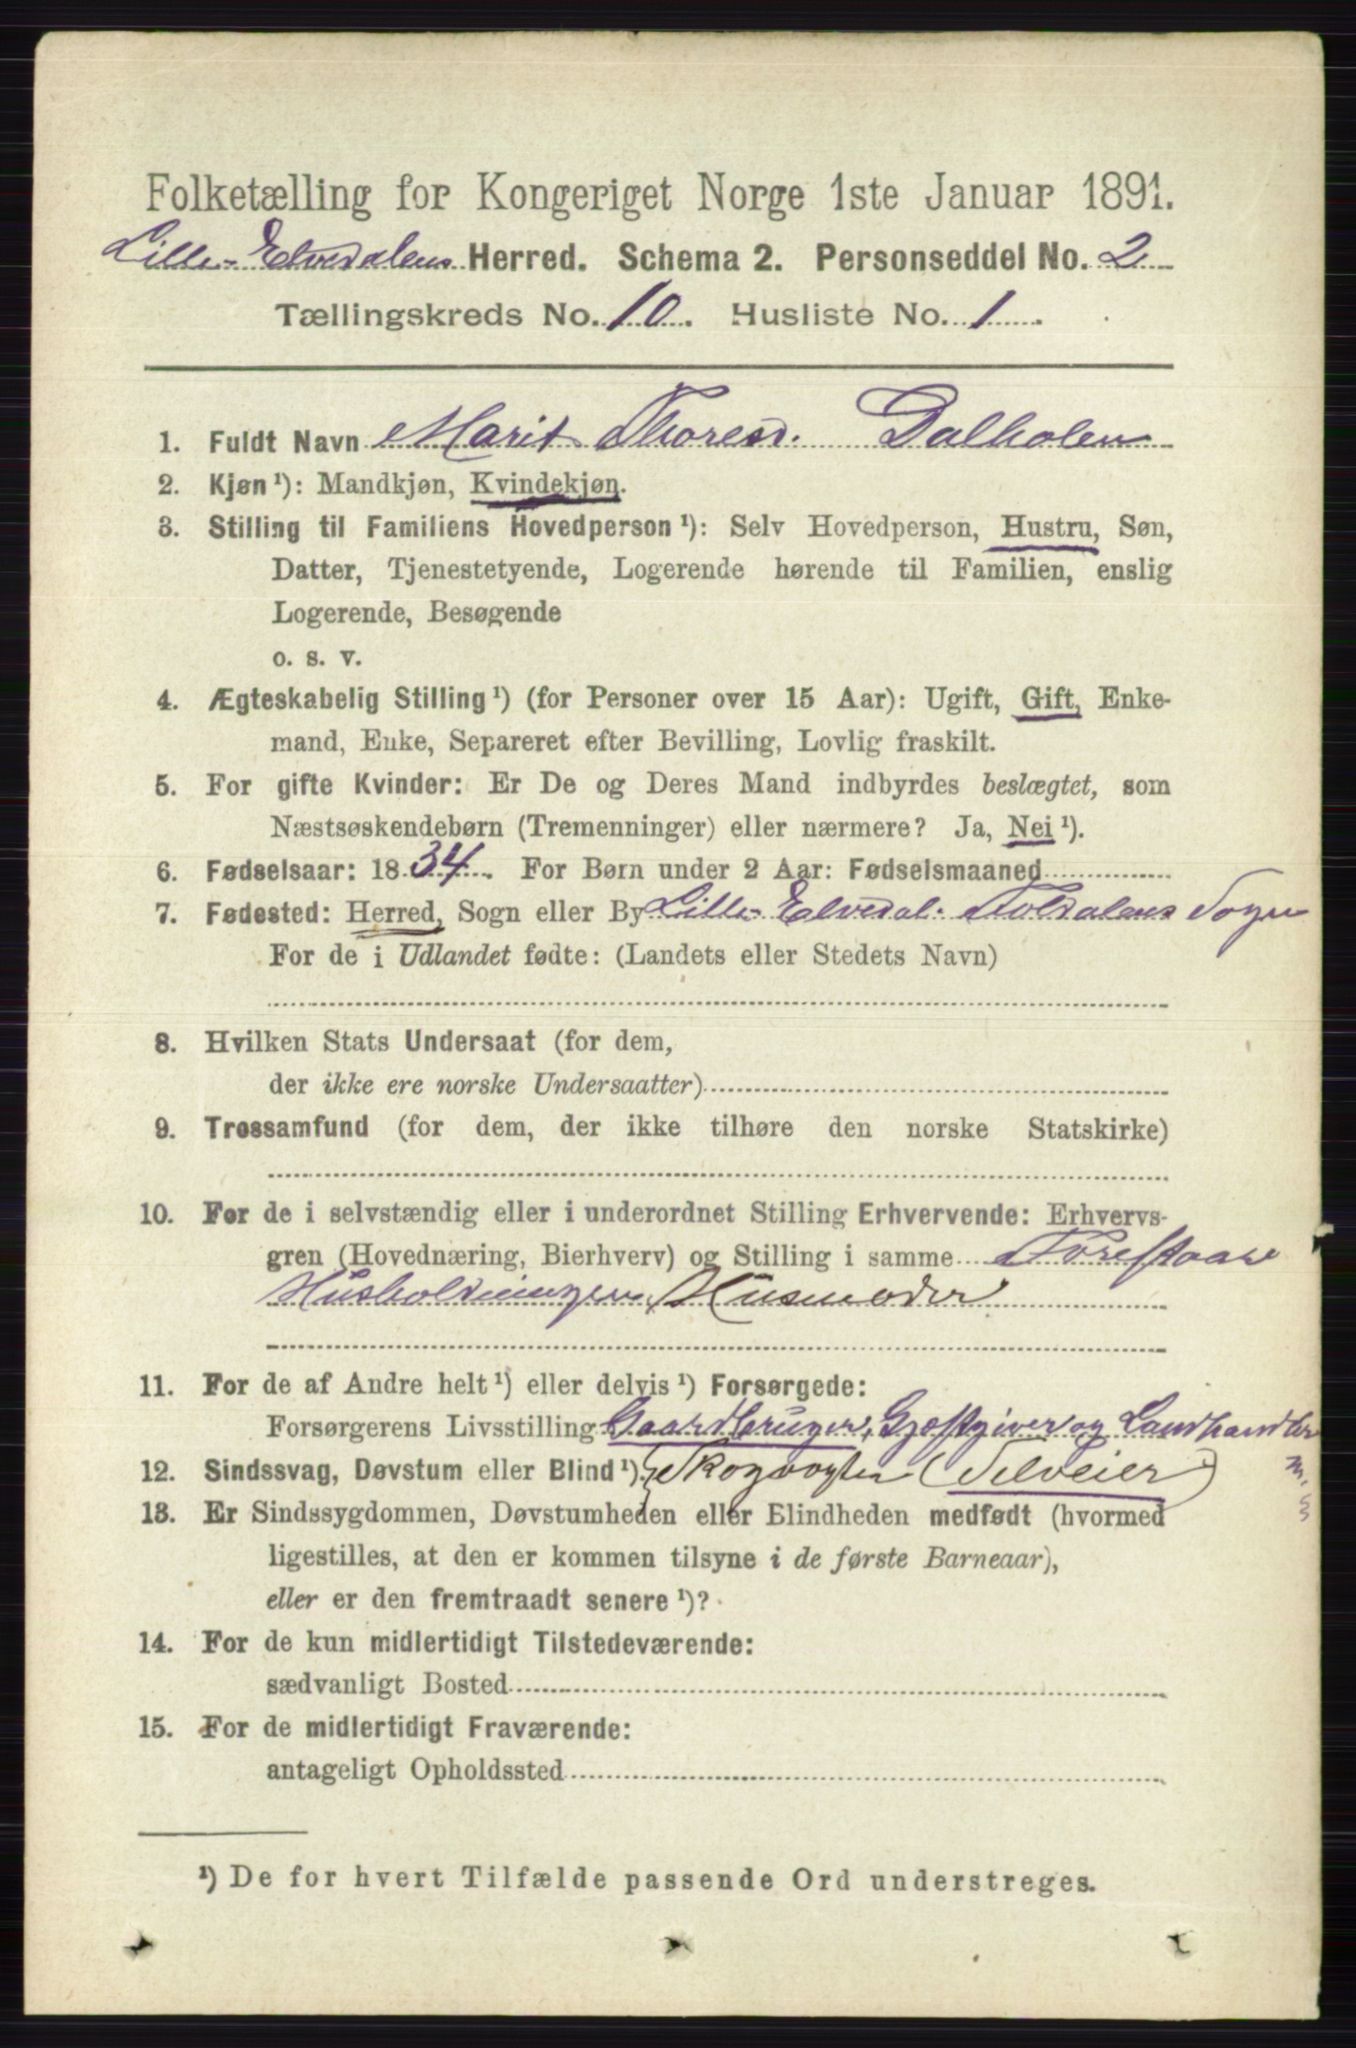 Folketælling for Kongeriget Norge 1ste Januar 1891.
Lille-Elvedalens Herred. Schema 2. Personseddel No. 2
Tællingskreds No. 10. Husliste No. 1.
1. Fuldt Navn Marit Thoresd. Dalholen
2. Kjøn ¹): Mandkjøn, Kvindekjøn.
3. Stilling til Familiens Hovedperson ¹): Selv Hovedperson, Hustru, Søn,
Datter, Tjenestetyende, Logerende hørende til Familien, enslig
Logerende, Besøgende
o. s. v.
4. Ægteskabelig Stilling ¹) (for Personer over 15 Aar): Ugift, Gift, Enke-
mand, Enke, Separeret efter Bevilling, Lovlig fraskilt.
5. For gifte Kvinder: Er De og Deres Mand indbyrdes beslægtet, som
Næstsøskendebørn (Tremenninger) eller nærmere? Ja, Nei ¹).
6. Fødselsaar: 1834. For Børn under 2 Aar: Fødselsmaaned
7. Fødested: Herred, Sogn eller By Lille-Elvedal. Foldalens Sogn
For de i Udlandet fødte: (Landets eller Stedets Navn)
8. Hvilken Stats Undersaat (for dem,
der ikke ere norske Undersaatter)
9. Trossamfund (for dem, der ikke tilhøre den norske Statskirke)
10. For de i selvstændig eller i underordnet Stilling Erhvervende: Erhvervs-
gren (Hovednæring, Bierhverv) og Stilling i samme Forestaar
Husholdningen, Husmoder
11. For de af Andre helt ¹) eller delvis ¹) Forsørgede:
Forsørgerens Livsstilling Gaardbruger, Gjæstgiver og Landhandler
12. Sindssvag, Døvstum eller Blind ¹). Skogvogter (Selveier) m.
13. Er Sindssygdommen, Døvstumheden eller Blindheden medfødt (hvormed
ligestilles, at den er kommen tilsyne i de første Barneaar),
eller er den fremtraadt senere ¹)?
14. For de kun midlertidigt Tilstedeværende:
sædvanligt Bosted
15. For de midlertidigt Fraværende:
antageligt Opholdssted
¹) De for hvert Tilfælde passende Ord understreges.